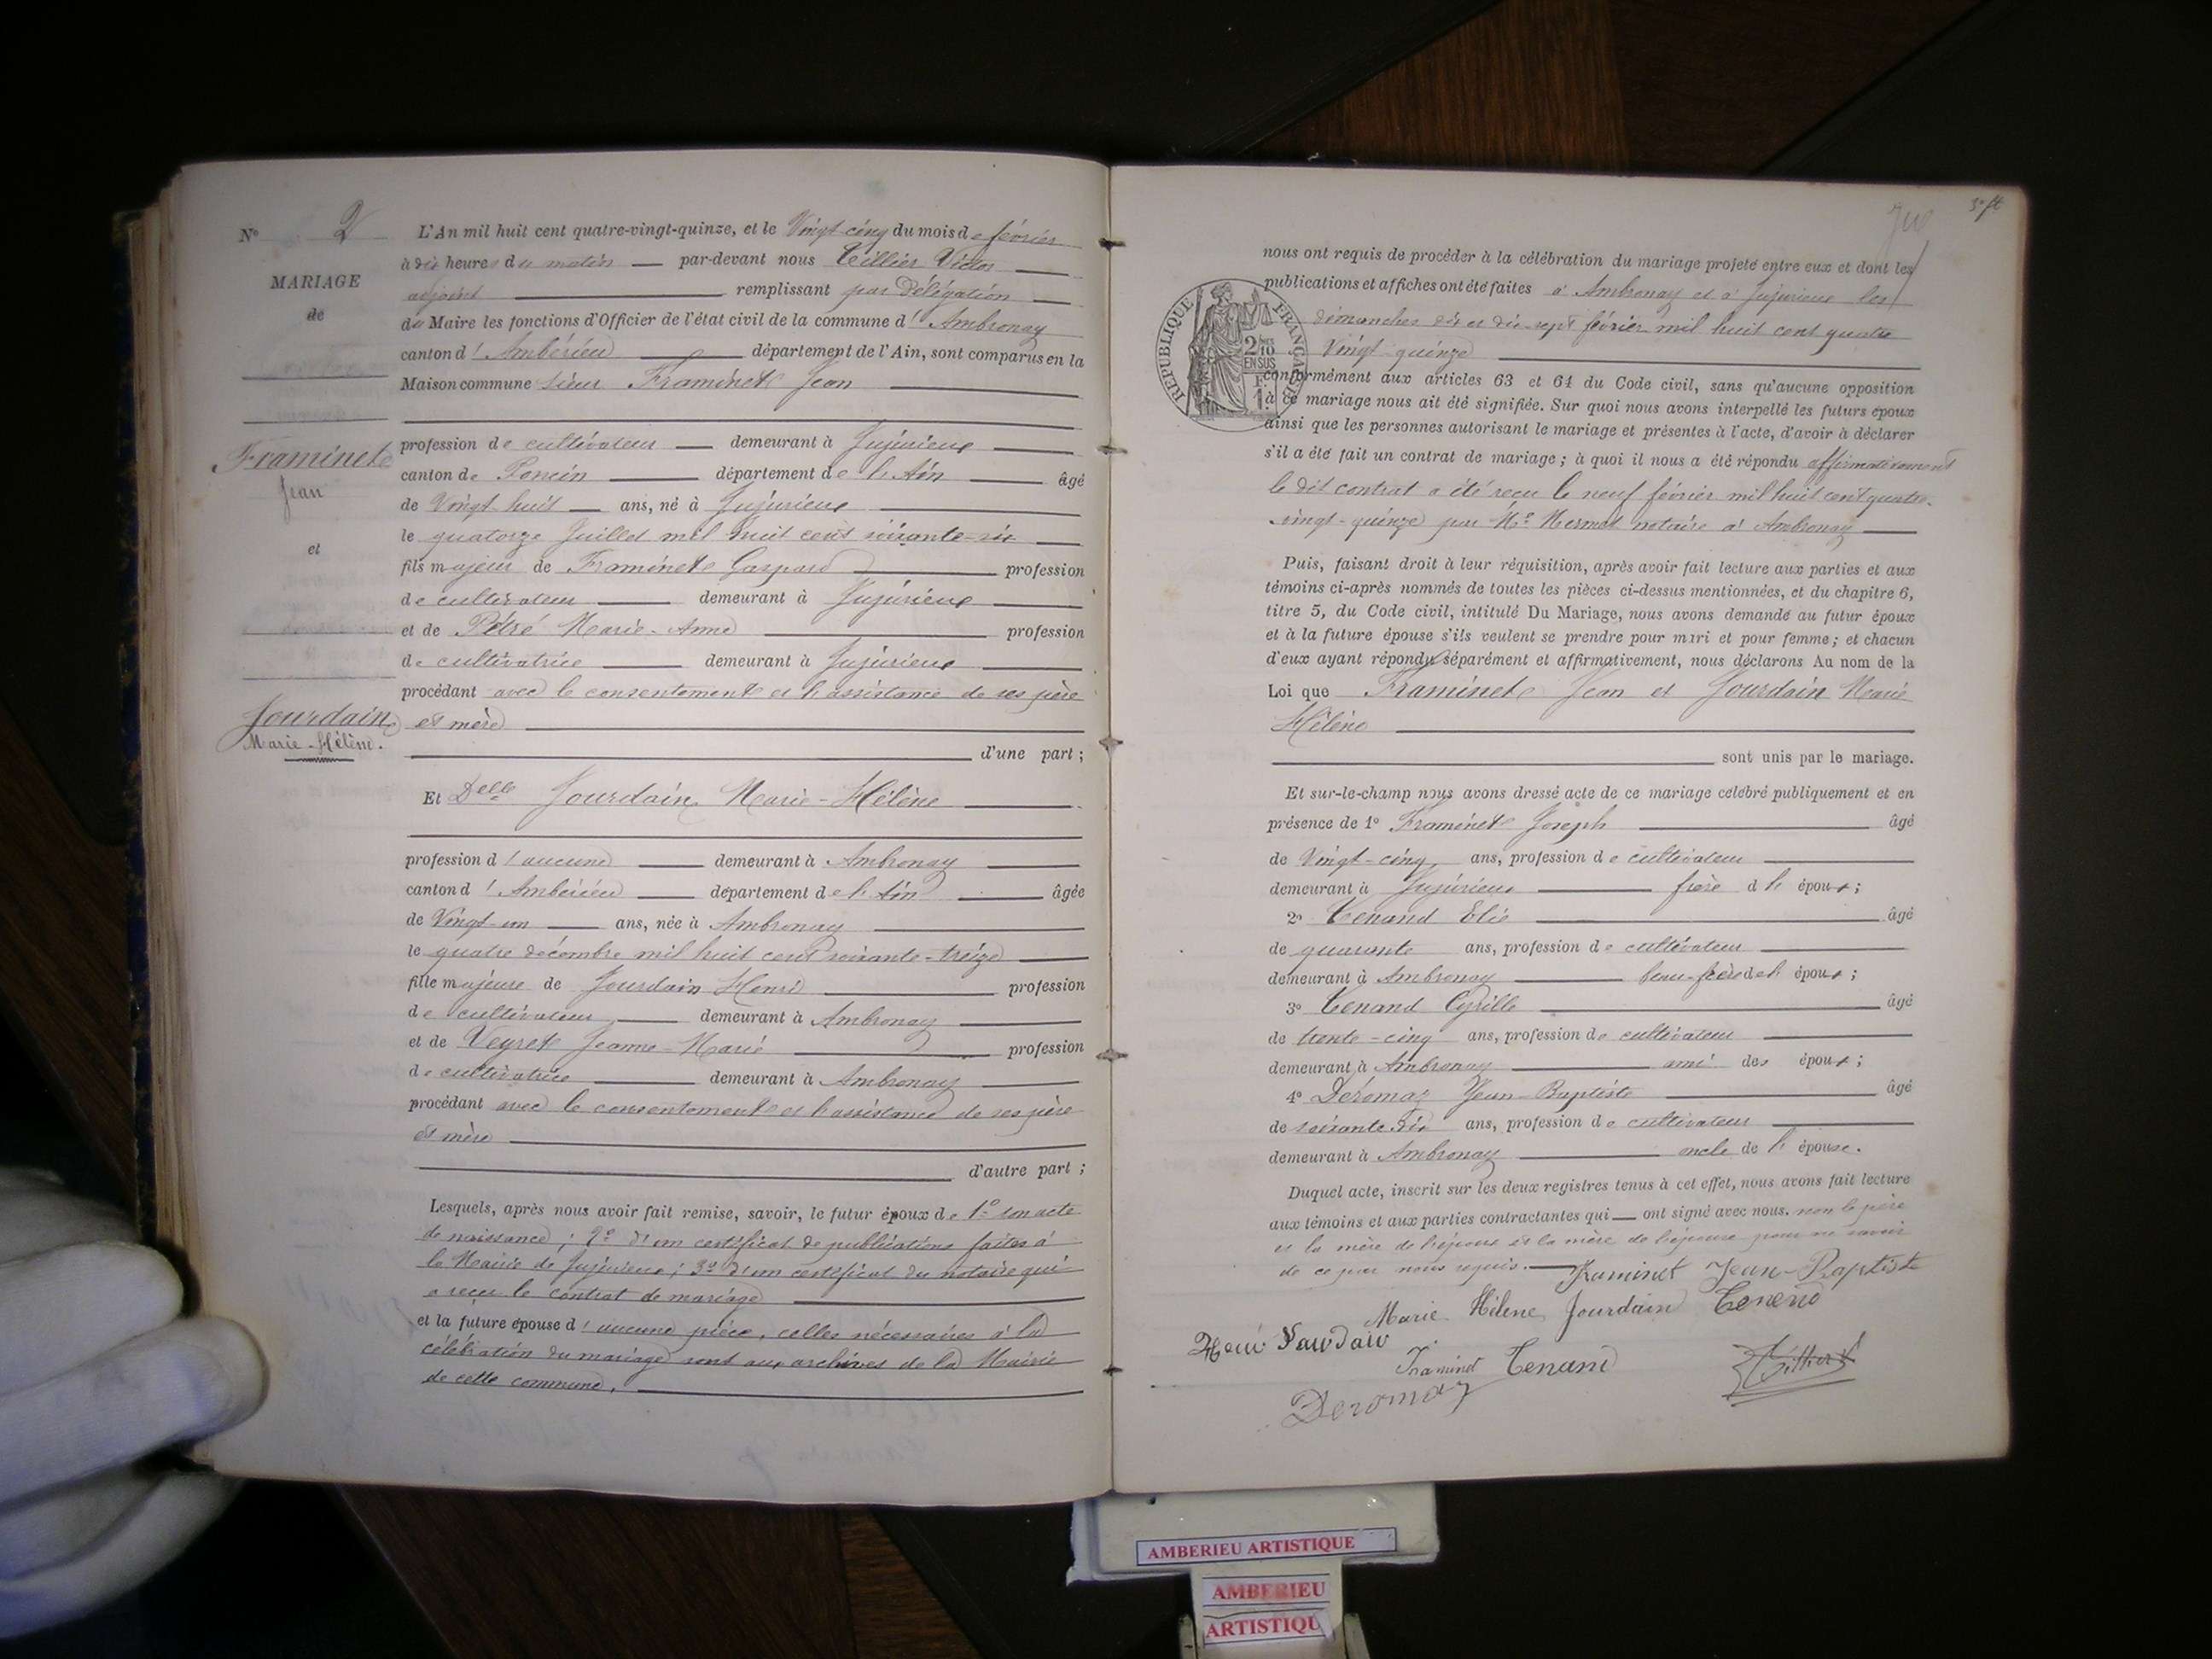 N° 2
MARIAGE
de
Framinet
Jean
et
Jourdain
Marie-Hélène.
L'An mil huit cent quatre-vingt-quinze, et le Vingt-cinq du mois de février
à dix heures du matin par-devant nous Tillier Victor
adjoint remplissant par Délégation
du Maire les fonctions d'Officier de l'état civil de la commune d' Ambronay
canton d' Ambérieu département de l'Ain, sont comparus en la
Maison commune sieur Framinet Jean
profession de cultivateur demeurant à Jujurieux
canton de Poncin département de l'Ain âgé
de Vingt huit ans, né à Jujurieux
le quatorze Juillet mil huit cent soixante-six
fils majeur de Framinet Gaspard profession
de cultivateur demeurant à Jujurieux
et de Pétré Marie-Anne profession
de cultivatrice demeurant à Jujurieux
procédant avec le consentement et l'assistance de ses père
et mère
d'une part ;
Et Delle Jourdain Marie-Hélène
profession d'aucune demeurant à Ambronay
canton d' Ambérieu département de l'Ain âgée
de Vingt-un ans, née à Ambronay
le quatre décembre mil huit cent soixante-treize
fille majeure de Jourdain Henri profession
de cultivateur demeurant à Ambronay
et de Veyret Jeanne-Marie profession
de cultivatrice demeurant à Ambronay
procédant avec le consentement et l'assistance de ses père
et mère
d'autre part ;
Lesquels, après nous avoir fait remise, savoir, le futur époux de 1° son acte
de naissance ; 2° d'un certificat de publications faites à
la Mairie de Jujurieux ; 3° d'un certificat du notaire qui
a reçu le contrat de mariage
et la future épouse d'aucune pièce, celles nécessaires à la
célébration du mariage sont aux archives de la Mairie
de cette commune.
3e ft
nous ont requis de procéder à la célébration du mariage projeté entre eux et dont les
publications et affiches ont été faites à Ambronay et à Jujurieux les
dimanches dix et dix-sept février mil huit cent quatre
Vingt-quinze
REPUBLIQUE FRANÇAISE
2/10 EN SUS
1 F.
conformément aux articles 63 et 64 du Code civil, sans qu'aucune opposition
à ce mariage nous ait été signifiée. Sur quoi nous avons interpellé les futurs époux
ainsi que les personnes autorisant le mariage et présentes à l'acte, d'avoir à déclarer
s'il a été fait un contrat de mariage ; à quoi il nous a été répondu affirmativement
le dit contrat a été reçu le neuf février mil huit cent quatre-
vingt-quinze par Me Mermet notaire à Ambronay
Puis, faisant droit à leur réquisition, après avoir fait lecture aux parties et aux
témoins ci-après nommés de toutes les pièces ci-dessus mentionnées, et du chapitre 6,
titre 5, du Code civil, intitulé Du Mariage, nous avons demandé au futur époux
et à la future épouse s'ils veulent se prendre pour mari et pour femme ; et chacun
d'eux ayant répondu séparément et affirmativement, nous déclarons Au nom de la
Loi que Framinet Jean et Jourdain Marie
Hélène
sont unis par le mariage.
Et sur-le-champ nous avons dressé acte de ce mariage célébré publiquement et en
présence de 1° Framinet Joseph âgé
de Vingt-cinq ans, profession de cultivateur
demeurant à Jujurieux frère d l' époux ;
2° Tenand Elie âgé
de quarante ans, profession de cultivateur
demeurant à Ambronay beau-frère de l' époux ;
3° Tenand Cyrille âgé
de trente-cinq ans, profession de cultivateur
demeurant à Ambronay ami des époux ;
4° Déromaz Jean-Baptiste âgé
de soixante-dix ans, profession de cultivateur
demeurant à Ambronay oncle de l' épouse.
Duquel acte, inscrit sur les deux registres tenus à cet effet, nous avons fait lecture
aux témoins et aux parties contractantes qui ont signé avec nous. non le père
et la mère de l'époux et la mère de l'épouse pour ne savoir
de ce par nous requis. Framinet Jean-Baptiste
Marie Hélene Jourdain Tenend
Henri Jourdain
Framinet Tenand
Tillier V
Deromaz
AMBERIEU ARTISTIQUE
AMBERIEU
ARTISTIQU